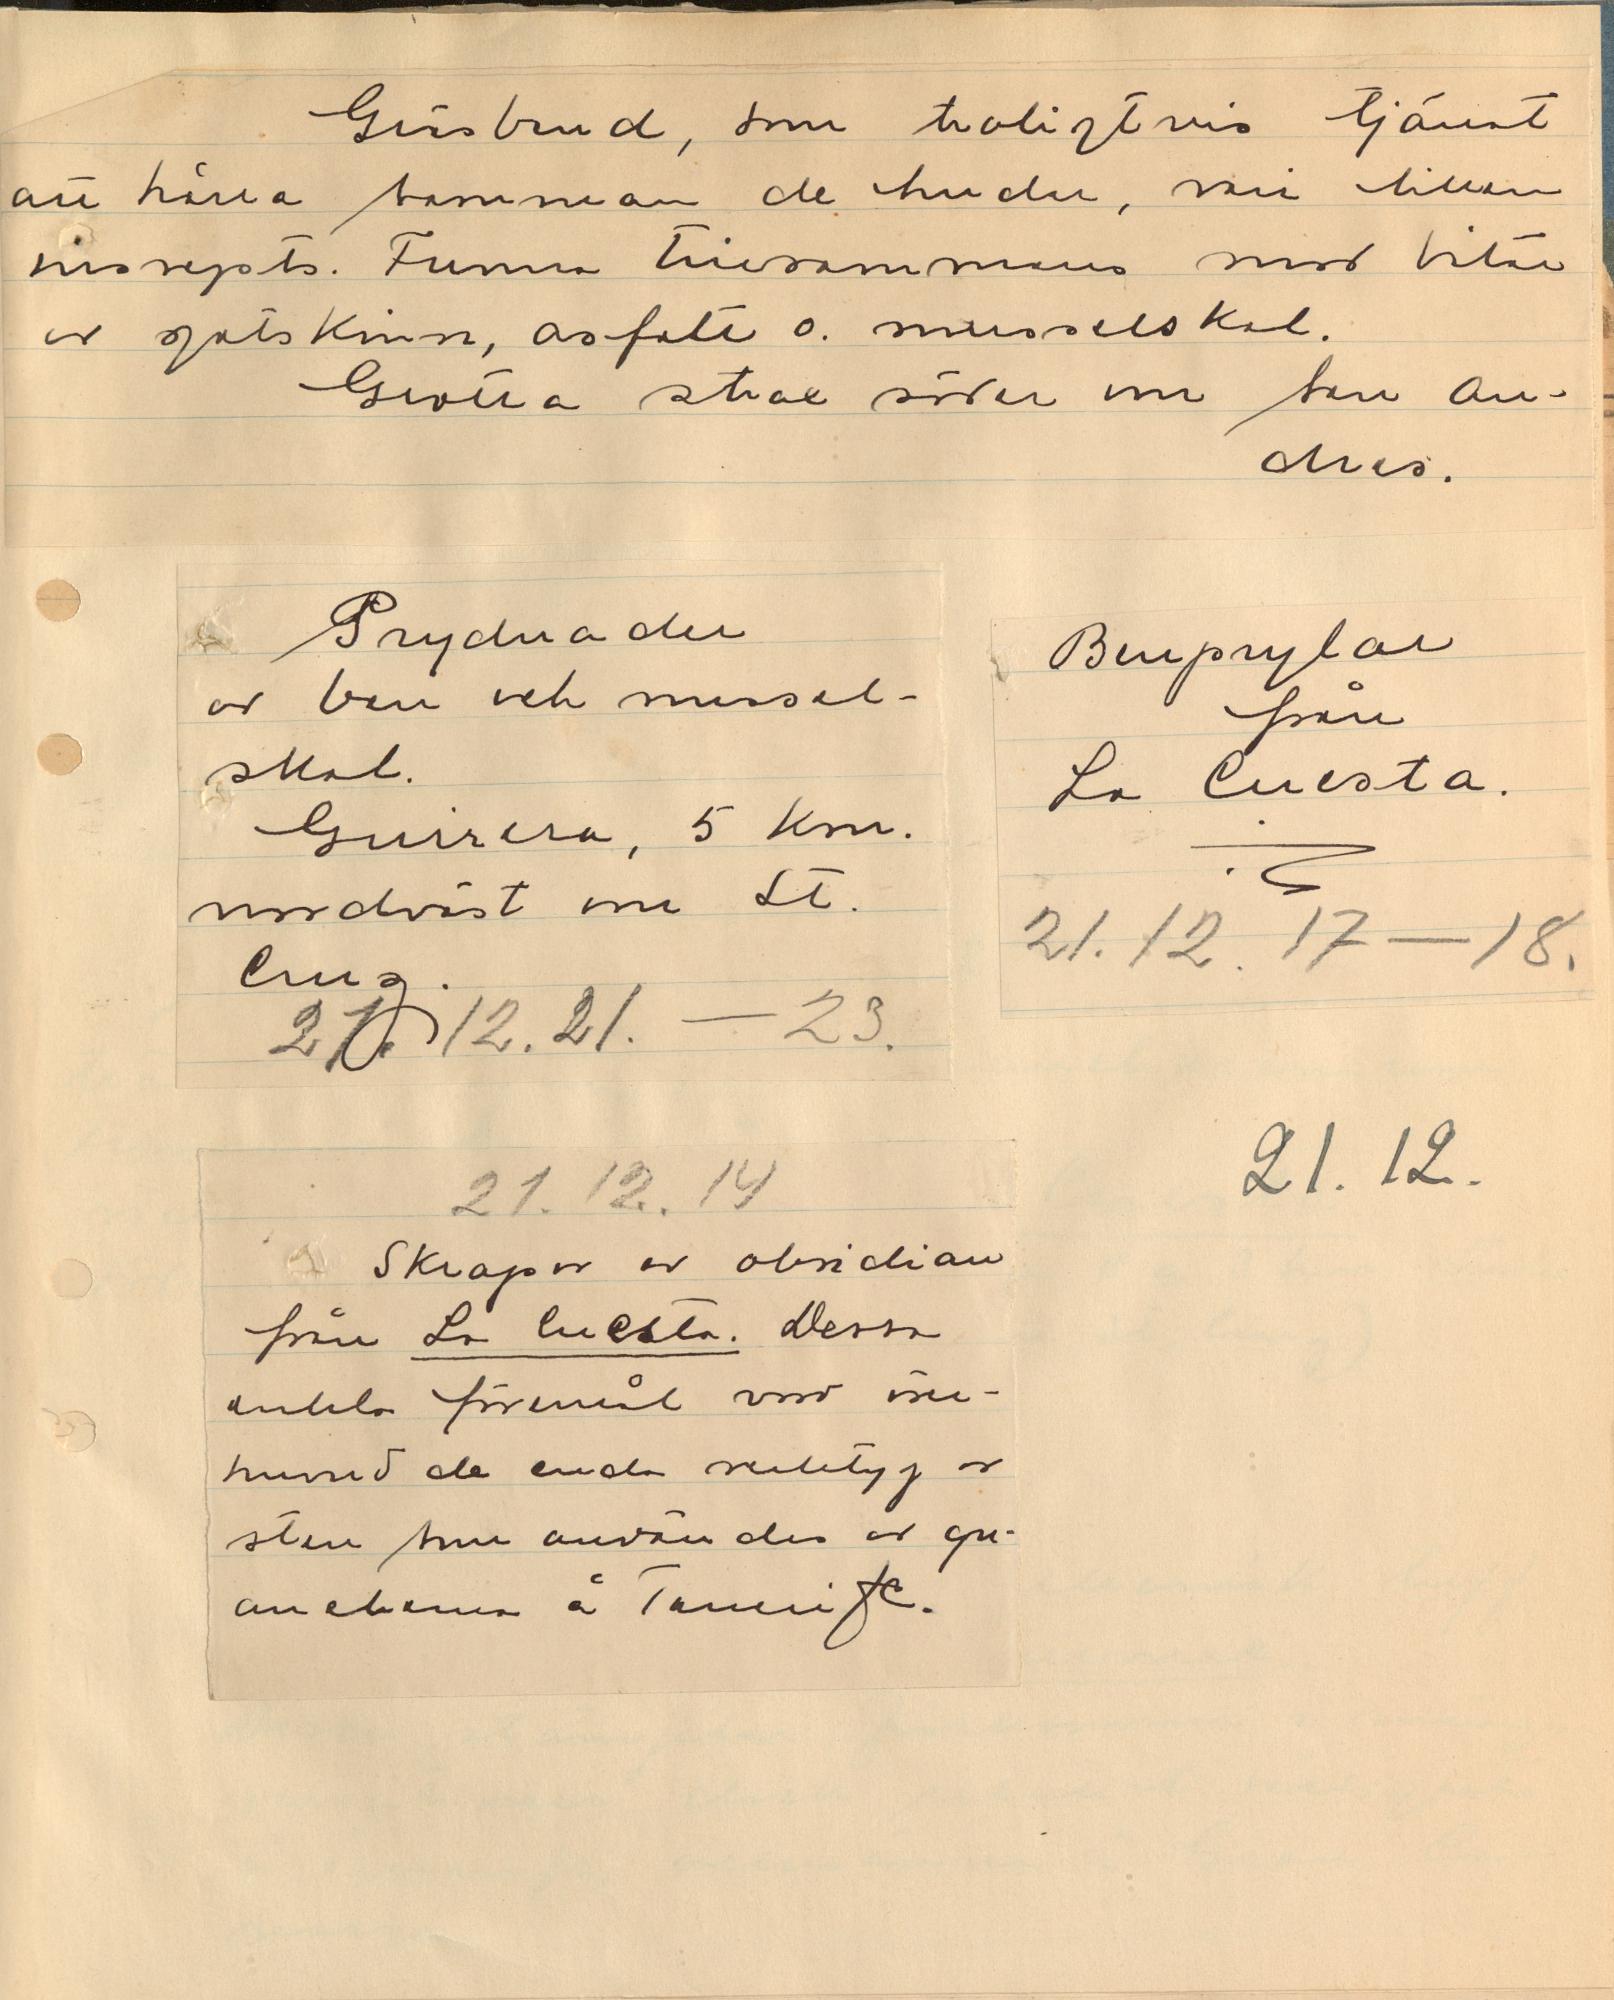 Gräsband, som troligtvis tjänat
att hålla samman de hudar, vari liken
insvepts. Funna tillsammans med bitar
av getskinn, asfalt o. musselskal.
Grotta strax söder om San An-
dres.
Prydnader
av ben och mussel-
skal.
Guirera, 5 km.
nordväst om St.
Cruz.
21. 12. 21. — 23.
Benprylar
från
La Cuesta.
21. 12. 17 — 18.
21. 12.
21. 12. 14
Skrapor av obsidian
från La Cuesta. Dessa
enkla föremål voro öfver-
huvud de enda verktyg av
sten som användes av gu-
ancherna å Teneriffe.